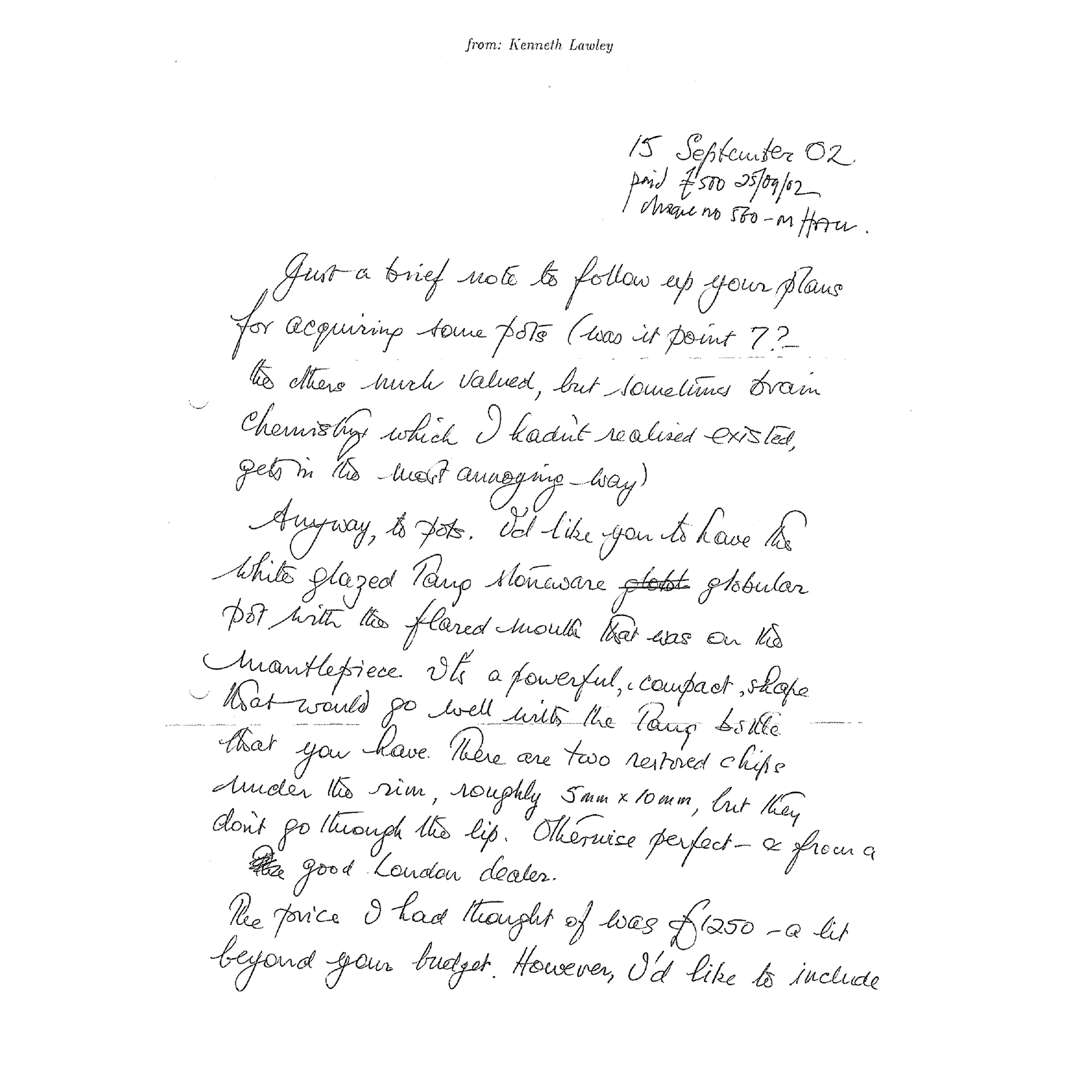 from: Kenneth Lawley
15 September 02.
paid £500 25/09/02
cheque no 560 - M
Just a brief note to follow up your plans
for acquiring some pots (was it point 7?-
the others much valued, but sometimes brain
chemistry which I hadn't realised existed,
gets in the most annoying way)
Anyway, to pots. I'd like you to have the
white glazed Tang stoneware globular
pot with the flared mouth that was on the
mantlepiece. It's a powerful, compact, shape
that would go well with the Tang bottle
that you have. There are two restored chips
under the rim, roughly 5mm x 10mm, but they
don't go through the lip. Otherwise perfect - & from a
good London dealer.
The price I had thought of was £1250 - a bit
beyond your budget. However, I'd like to include